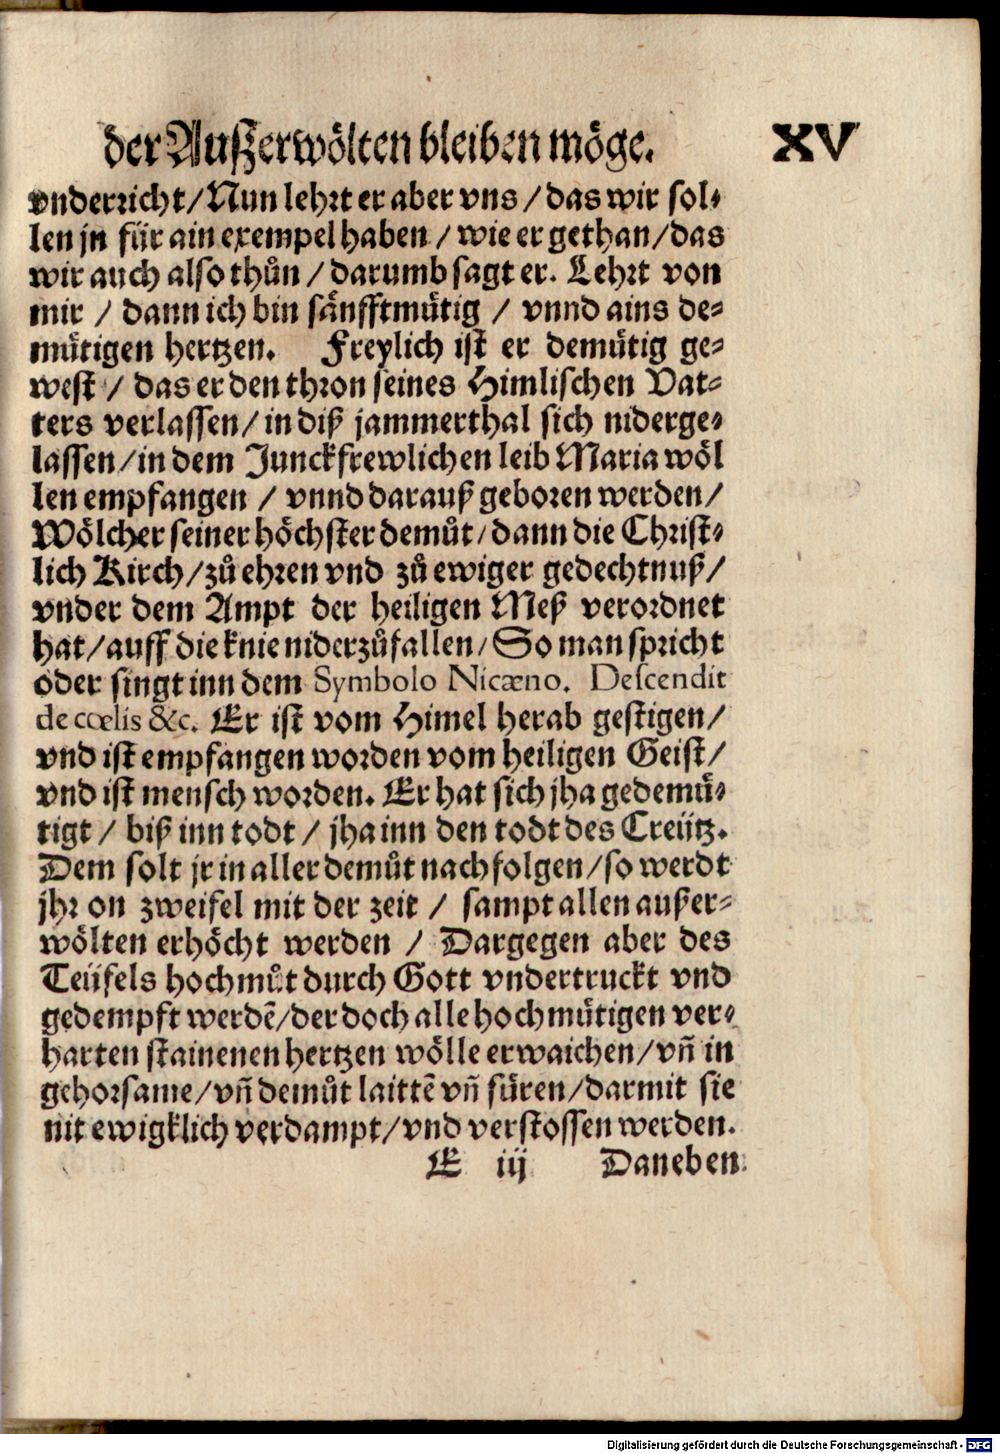 der Auſzerwoͤlten bleiben moͤge. XV
vnderricht/Nun lehrt er aber vns/das wir ſol-
len jn für ain exempel haben/wie er gethan/das
wir auch alſo thuͦn/darumb ſagt er. Lehrt von
mir/dann ich bin ſaͤnfftmuͤtig/vnnd ains de-
muͤtigen hertzen. Freylich iſt er demuͤtig ge-
weſt/das er den thron ſeines Himliſchen Vat-
ters verlaſſen/in diß jammerthal ſich niderge-
laſſen/in dem Junckfrewlichen leib Maria woͤl
len empfangen/vnnd darauß geboren werden/
Woͤlcher ſeiner hoͤchſter demuͦt/dann die Chriſt-
lich Kirch/zuͦ ehren vnd zuͦ ewiger gedechtnuß/
vnder dem Ampt der heiligen Meß verordnet
hat/auff die knie niderzuͦfallen/So man ſpricht
oder ſingt inn dem Symbolo Nicæno. Deſcendit
de cœlis &c. Er iſt vom Himel herab geſtigen/
vnd iſt empfangen worden vom heiligen Geiſt/
vnd iſt menſch worden. Er hat ſich jha gedemuͤ-
tigt/biß inn todt/jha inn den todt des Creütz.
Dem ſolt jr in aller demuͦt nachfolgen/ſo werdt
jhr on zweifel mit der zeit/ſampt allen außer-
woͤlten erhoͤcht werden/Dargegen aber des
Teüfels hochmuͦt durch Gott vndertruckt vnd
gedempft werdē/der doch alle hochmuͤtigen ver-
harten ſtainenen hertzen woͤlle erwaichen/vñ in
gehorſame/vñ demuͦt laittē vñ füren/darmit ſie
nit ewigklich verdampt/vnd verſtoſſen werden.
E iij Daneben
Digitalisierung gefördert durch die Deutsche Forschungsgemeinschaft - DFG